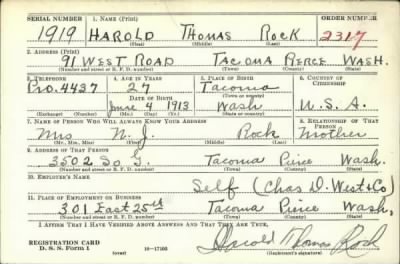 SERIAL NUMBER 1. NAME (Print) ORDER NUMBER
1919 HAROLD THOMAS ROCK 2317
(First) (Middle) (Last)
2. ADDRESS (Print)
91 WEST ROAD TACOMA PIERCE WASH.
(Number and street or R. F. D. number) (Town) (County) (State)
3. TELEPHONE 4. AGE IN YEARS 5. PLACE OF BIRTH 6. COUNTRY OF CITIZENSHIP
Pro. 4437 27 Tacoma
DATE OF BIRTH (Town or county)
June 4 1913 Wash U.S.A.
(Exchange) (Number) (Mo.) (Day) (Yr.) (State or country)
7. NAME OF PERSON WHO WILL ALWAYS KNOW YOUR ADDRESS 8. RELATIONSHIP OF THAT PERSON
Mrs N. J. Rock Mother
(Mr., Mrs., Miss) (First) (Middle) (Last)
9. ADDRESS OF THAT PERSON
3502 So G. Tacoma Pierce Wash.
(Number and street or R. F. D. number) (Town) (County) (State)
10. EMPLOYER'S NAME
Self (Chas D. West & Co)
11. PLACE OF EMPLOYMENT OR BUSINESS
301 East 25th Tacoma Pierce Wash.
(Number and street or R. F. D. number) (Town) (County) (State)
I AFFIRM THAT I HAVE VERIFIED ABOVE ANSWERS AND THAT THEY ARE TRUE.
REGISTRATION CARD
D. S. S. Form 1 (over) 16-17105 Harold Thomas Rock
(Registrant's signature)